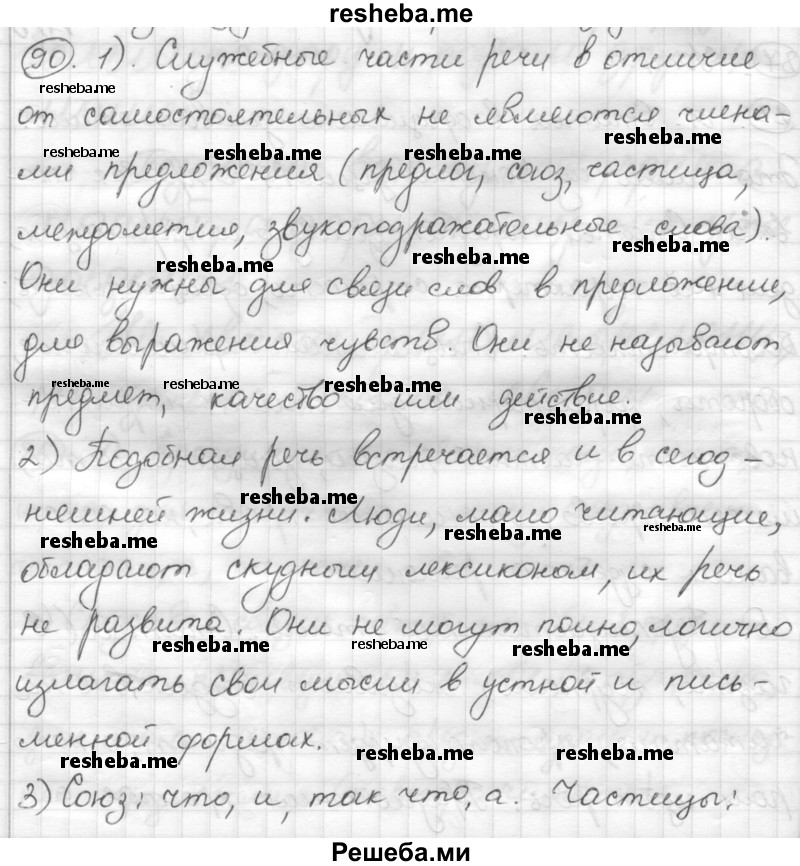 resheba.me
90. 1). Служебные части речи в отличие
resheba.me
от самостоятельных не являются члена-
resheba.me
resheba.me resheba.me resheba.me
ми предложения (предлог, союз, частица,
междометия, звукоподражательные слова).
resheba.me resheba.me resheba.me
Они нужны для связи слов в предложении,
для выражения чувств. Они не называют
resheba.me resheba.me resheba.me
предмет, качество или действие.
resheba.me
2) Подобная речь встречается и в сегод-
resheba.me
нешней жизни. Люди, мало читающие,
resheba.me resheba.me resheba.me
обладают скудным лексиконом, их речь
не развита. Они не могут полно, логично
resheba.me resheba.me resheba.me
излагать свои мысли в устной и пись-
менной формах.
resheba.me resheba.me resheba.me
3) Союз: что, и, так что, а. Частицы:
Решеба.ми